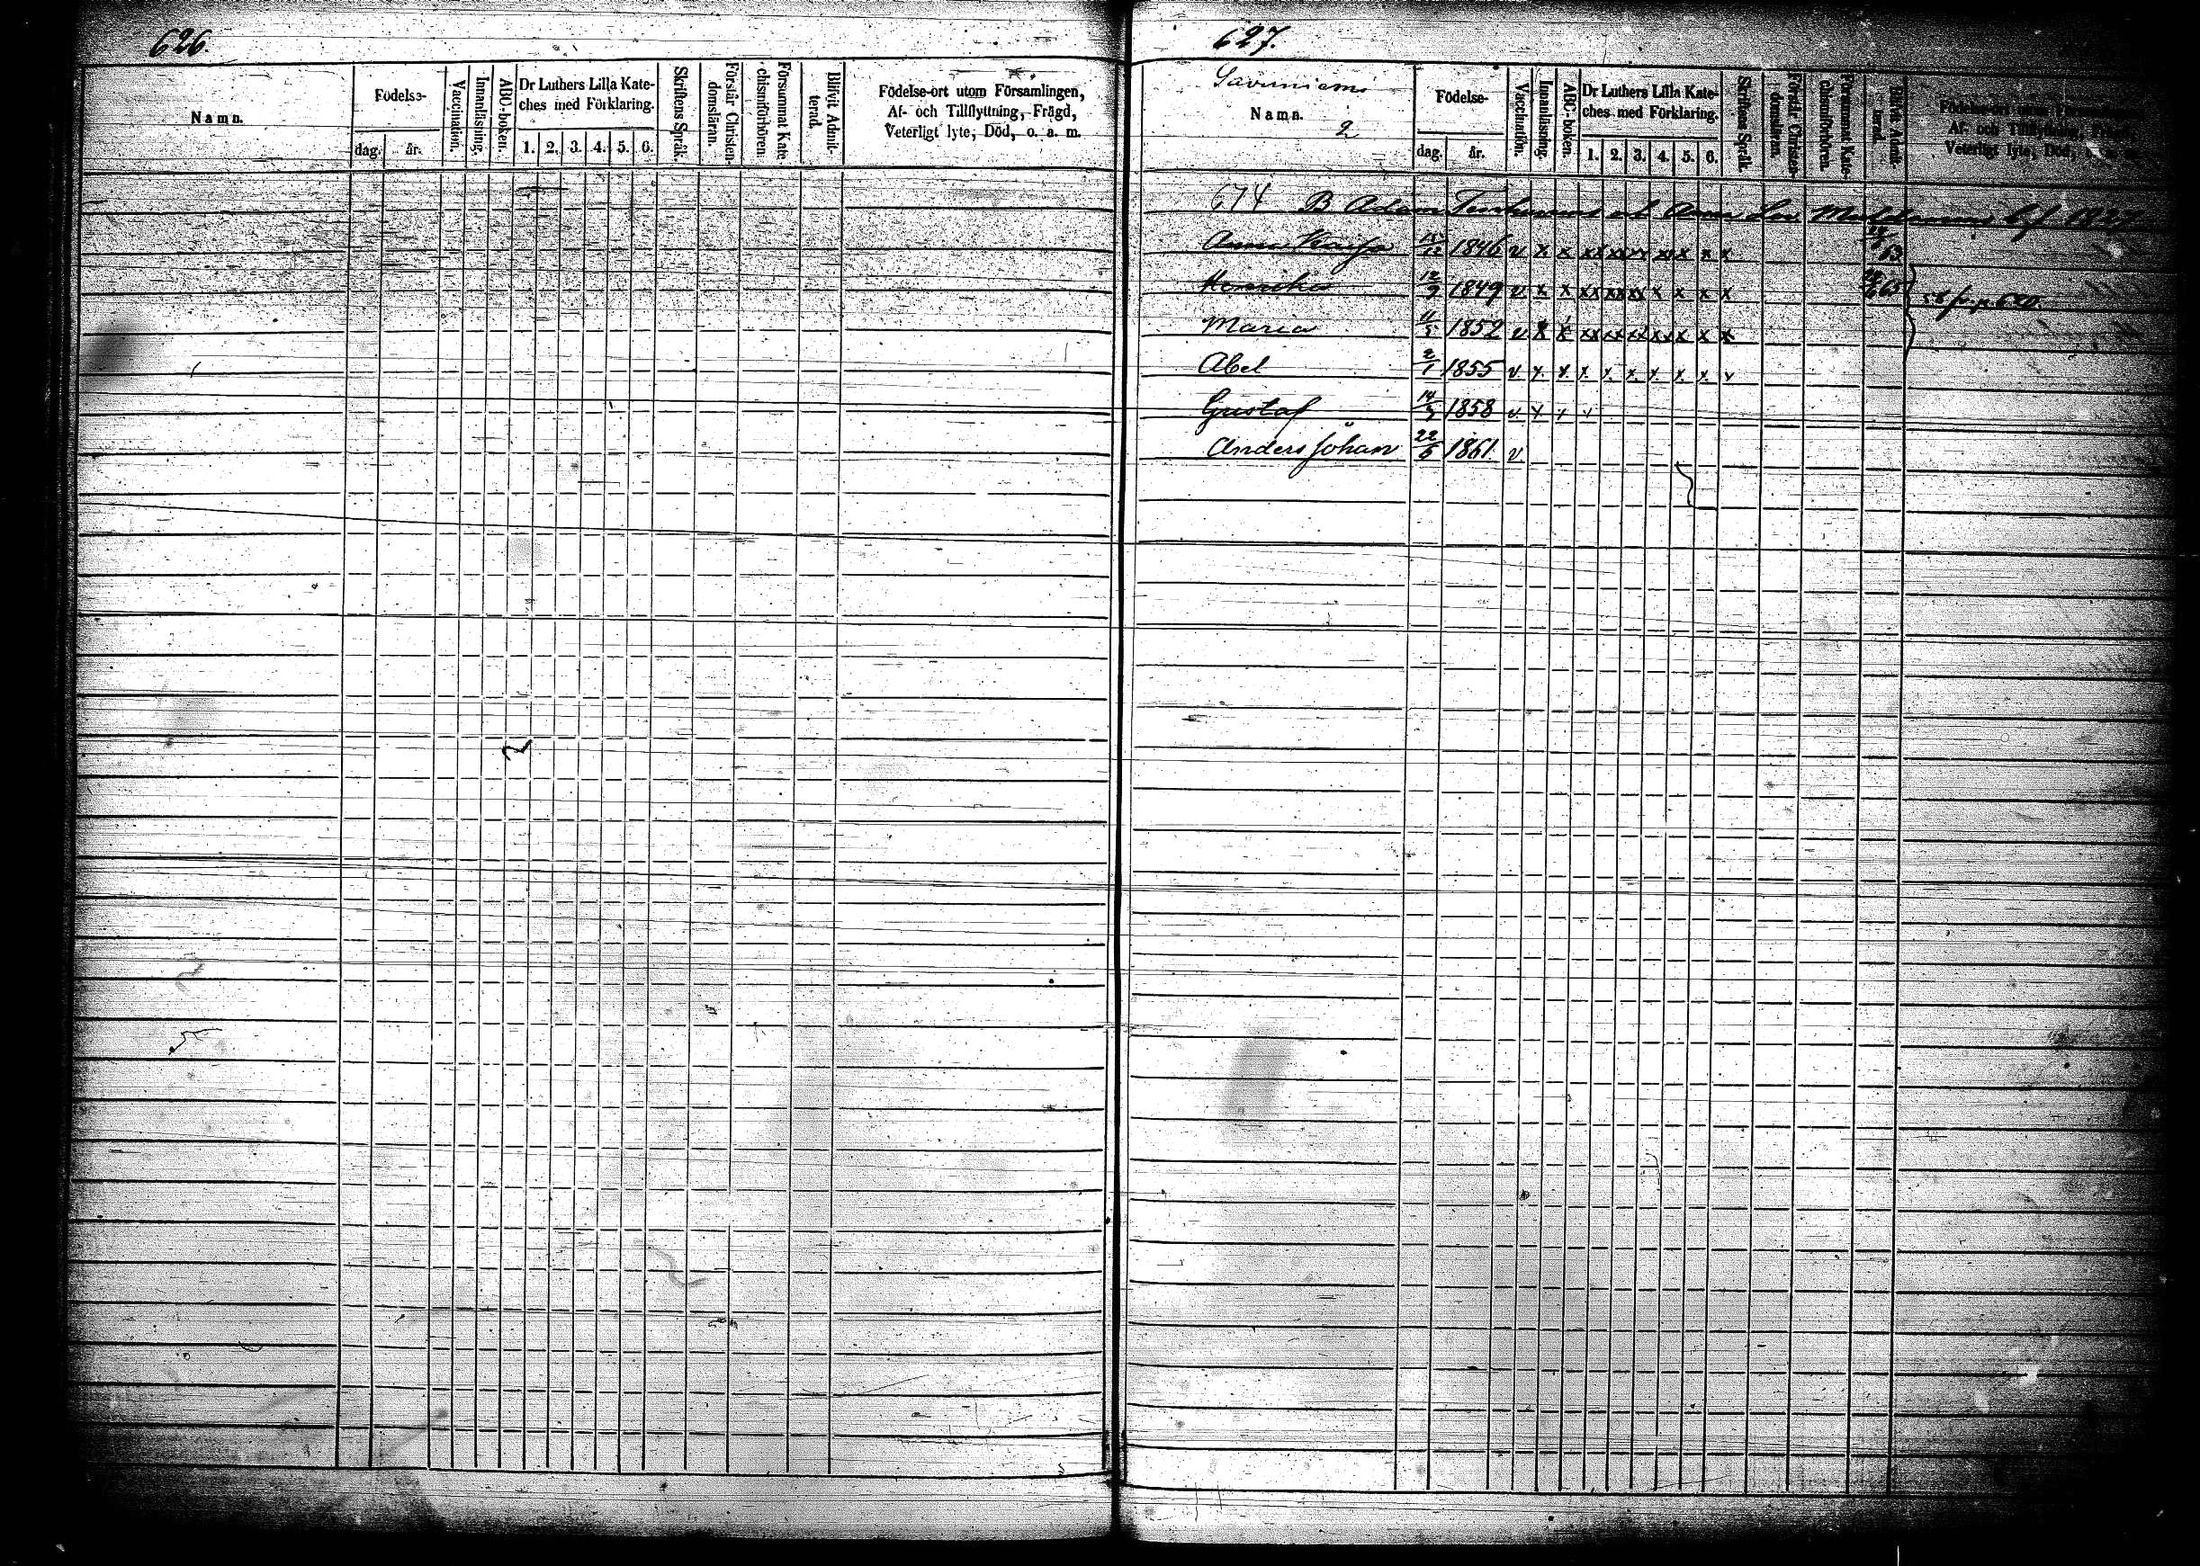 626.
Namn.
Födelse-
dag.
år.
Vaccination.
Innanläsning.
ABC-boken.
Dr Luthers Lilla Kate-
ches med Förklaring.
1. 2. 3. 4. 5. 6.
Skriftens Språk.
Förstår Christen-
domsläran.
Försummat Kate-
chismiförhören.
Blifvit Admit-
terad.
Födelse-ort utom Församlingen,
Af- och Tillflyttning, Frägd,
Veterligt lyte, Död, o. a. m.
627.
Namn.
2
Födelse-
dag. år.
Vaccination.
Innanläsning.
ABC-boken.
Dr Luthers Lilla Kate-
ches med Förklaring.
1. 2. 3. 4. 5. 6.
Skriftens Språk.
Förstår Christen-
domsläran.
Försummat Kate-
chismiförhören.
Blifvit Admit-
terad.
Födelse-ort utom Församlingen,
Af- och Tillflyttning, Frägd,
Veterligt lyte, Död, o. a. m.
674 B Adam
Anna Kaisa 1846 v x x xx xx xx xx x x x
12/9 1849 v x x xx xx xx x x x x 65
Maria 11/5 1852 v x x xx xx xx xx x x x
Abel 2/1 1855 v x x x x x x x x x
Gustaf 1858 v x x x
Anders Johan 22/6 1861 v